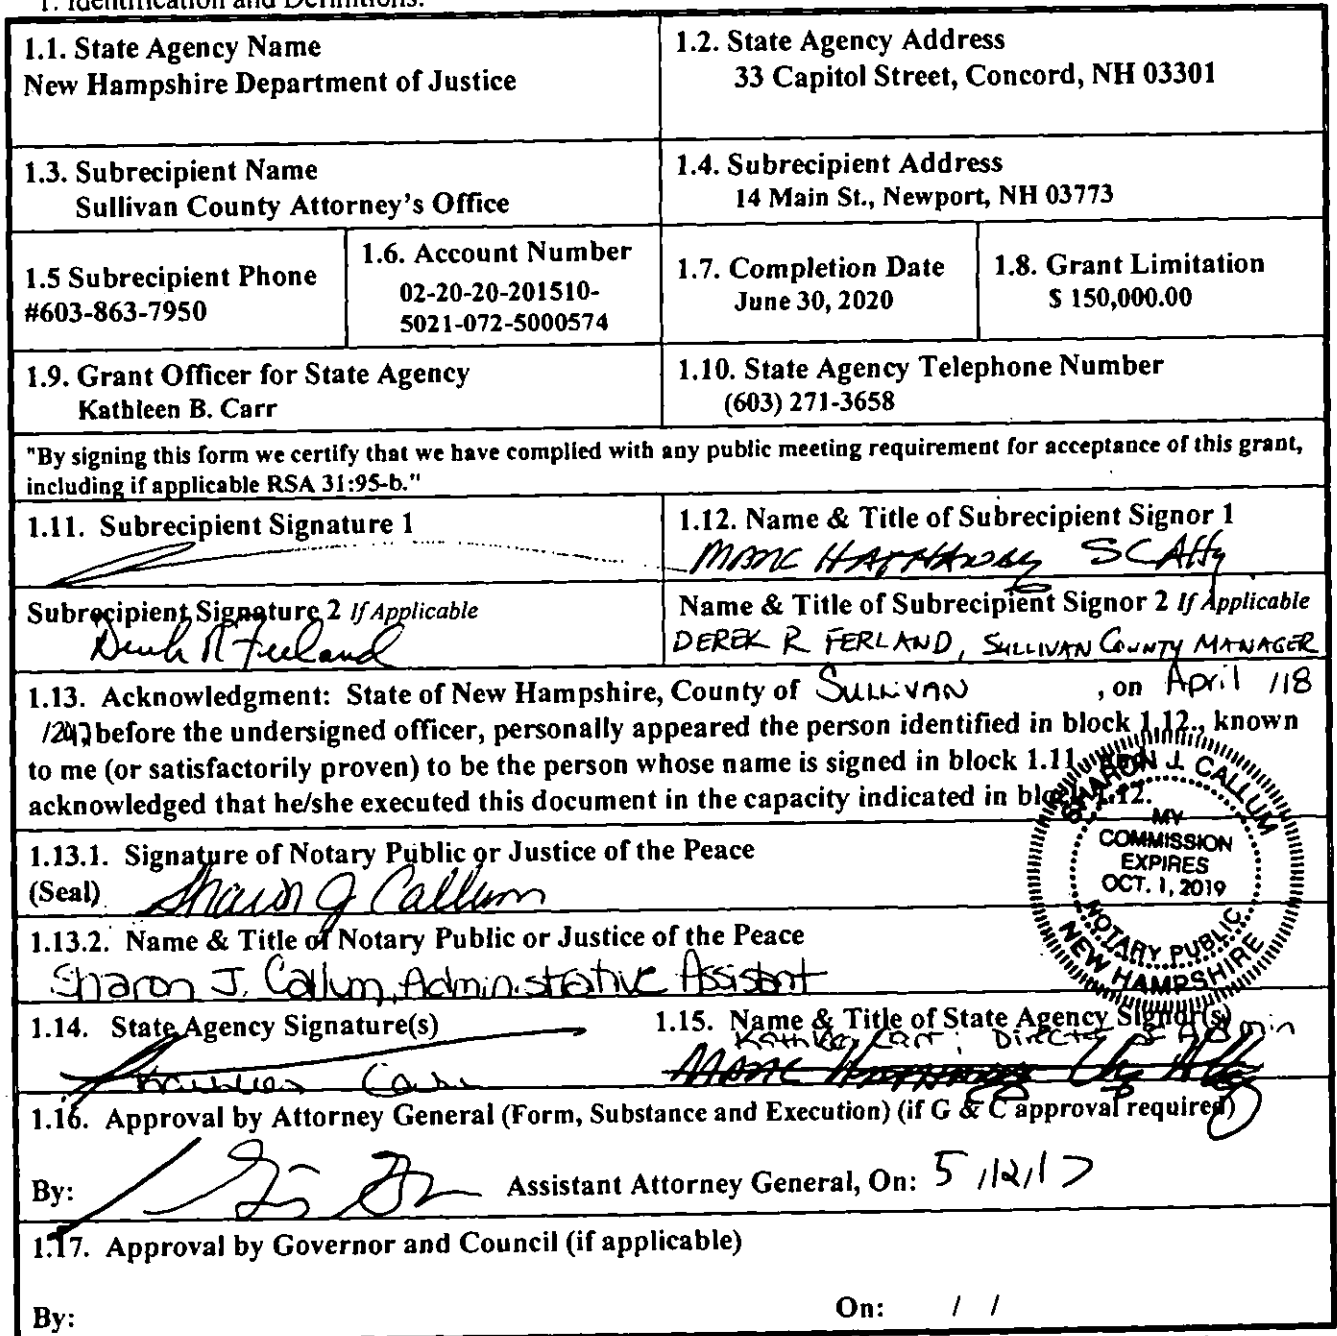 1. Identification and Definitions.
1.1. State Agency Name
New Hampshire Department of Justice
1.2. State Agency Address
33 Capitol Street, Concord, NH 03301
1.3. Subrecipient Name
Sullivan County Attorney's Office
1.4. Subrecipient Address
14 Main St., Newport, NH 03773
1.5 Subrecipient Phone
#603-863-7950
1.6. Account Number
02-20-20-201510-
5021-072-5000574
1.7. Completion Date
June 30, 2020
1.8. Grant Limitation
$ 150,000.00
1.9. Grant Officer for State Agency
Kathleen B. Carr
1.10. State Agency Telephone Number
(603) 271-3658
"By signing this form we certify that we have complied with any public meeting requirement for acceptance of this grant,
including if applicable RSA 31:95-b."
1.11. Subrecipient Signature 1
1.12. Name & Title of Subrecipient Signor 1
MARC HATHAWAY SC Atty
Subrecipient Signature 2 If Applicable
Derek R Ferland
Name & Title of Subrecipient Signor 2 If Applicable
DEREK R FERLAND, SULLIVAN COUNTY MANAGER
1.13. Acknowledgment: State of New Hampshire, County of SULLIVAN , on April /18
/2017 before the undersigned officer, personally appeared the person identified in block 1.12., known
to me (or satisfactorily proven) to be the person whose name is signed in block 1.11
acknowledged that he/she executed this document in the capacity indicated in block 1.12.
SHARON J. CALLUM
MY
COMMISSION
EXPIRES
OCT. 1, 2019
NOTARY PUBLIC
NEW HAMPSHIRE
1.13.1. Signature of Notary Public or Justice of the Peace
(Seal) Sharon J Callum
1.13.2. Name & Title of Notary Public or Justice of the Peace
Sharon J. Callum, Administrative Assistant
1.14. State Agency Signature(s)
Kathleen Carr
1.15. Name & Title of State Agency Signor(s)
Kathleen Carr; Director of Admin
MARC HATHAWAY Atty
1.16. Approval by Attorney General (Form, Substance and Execution) (if G & C approval required)
By: Assistant Attorney General, On: 5/12/17
1.17. Approval by Governor and Council (if applicable)
By: On: / /